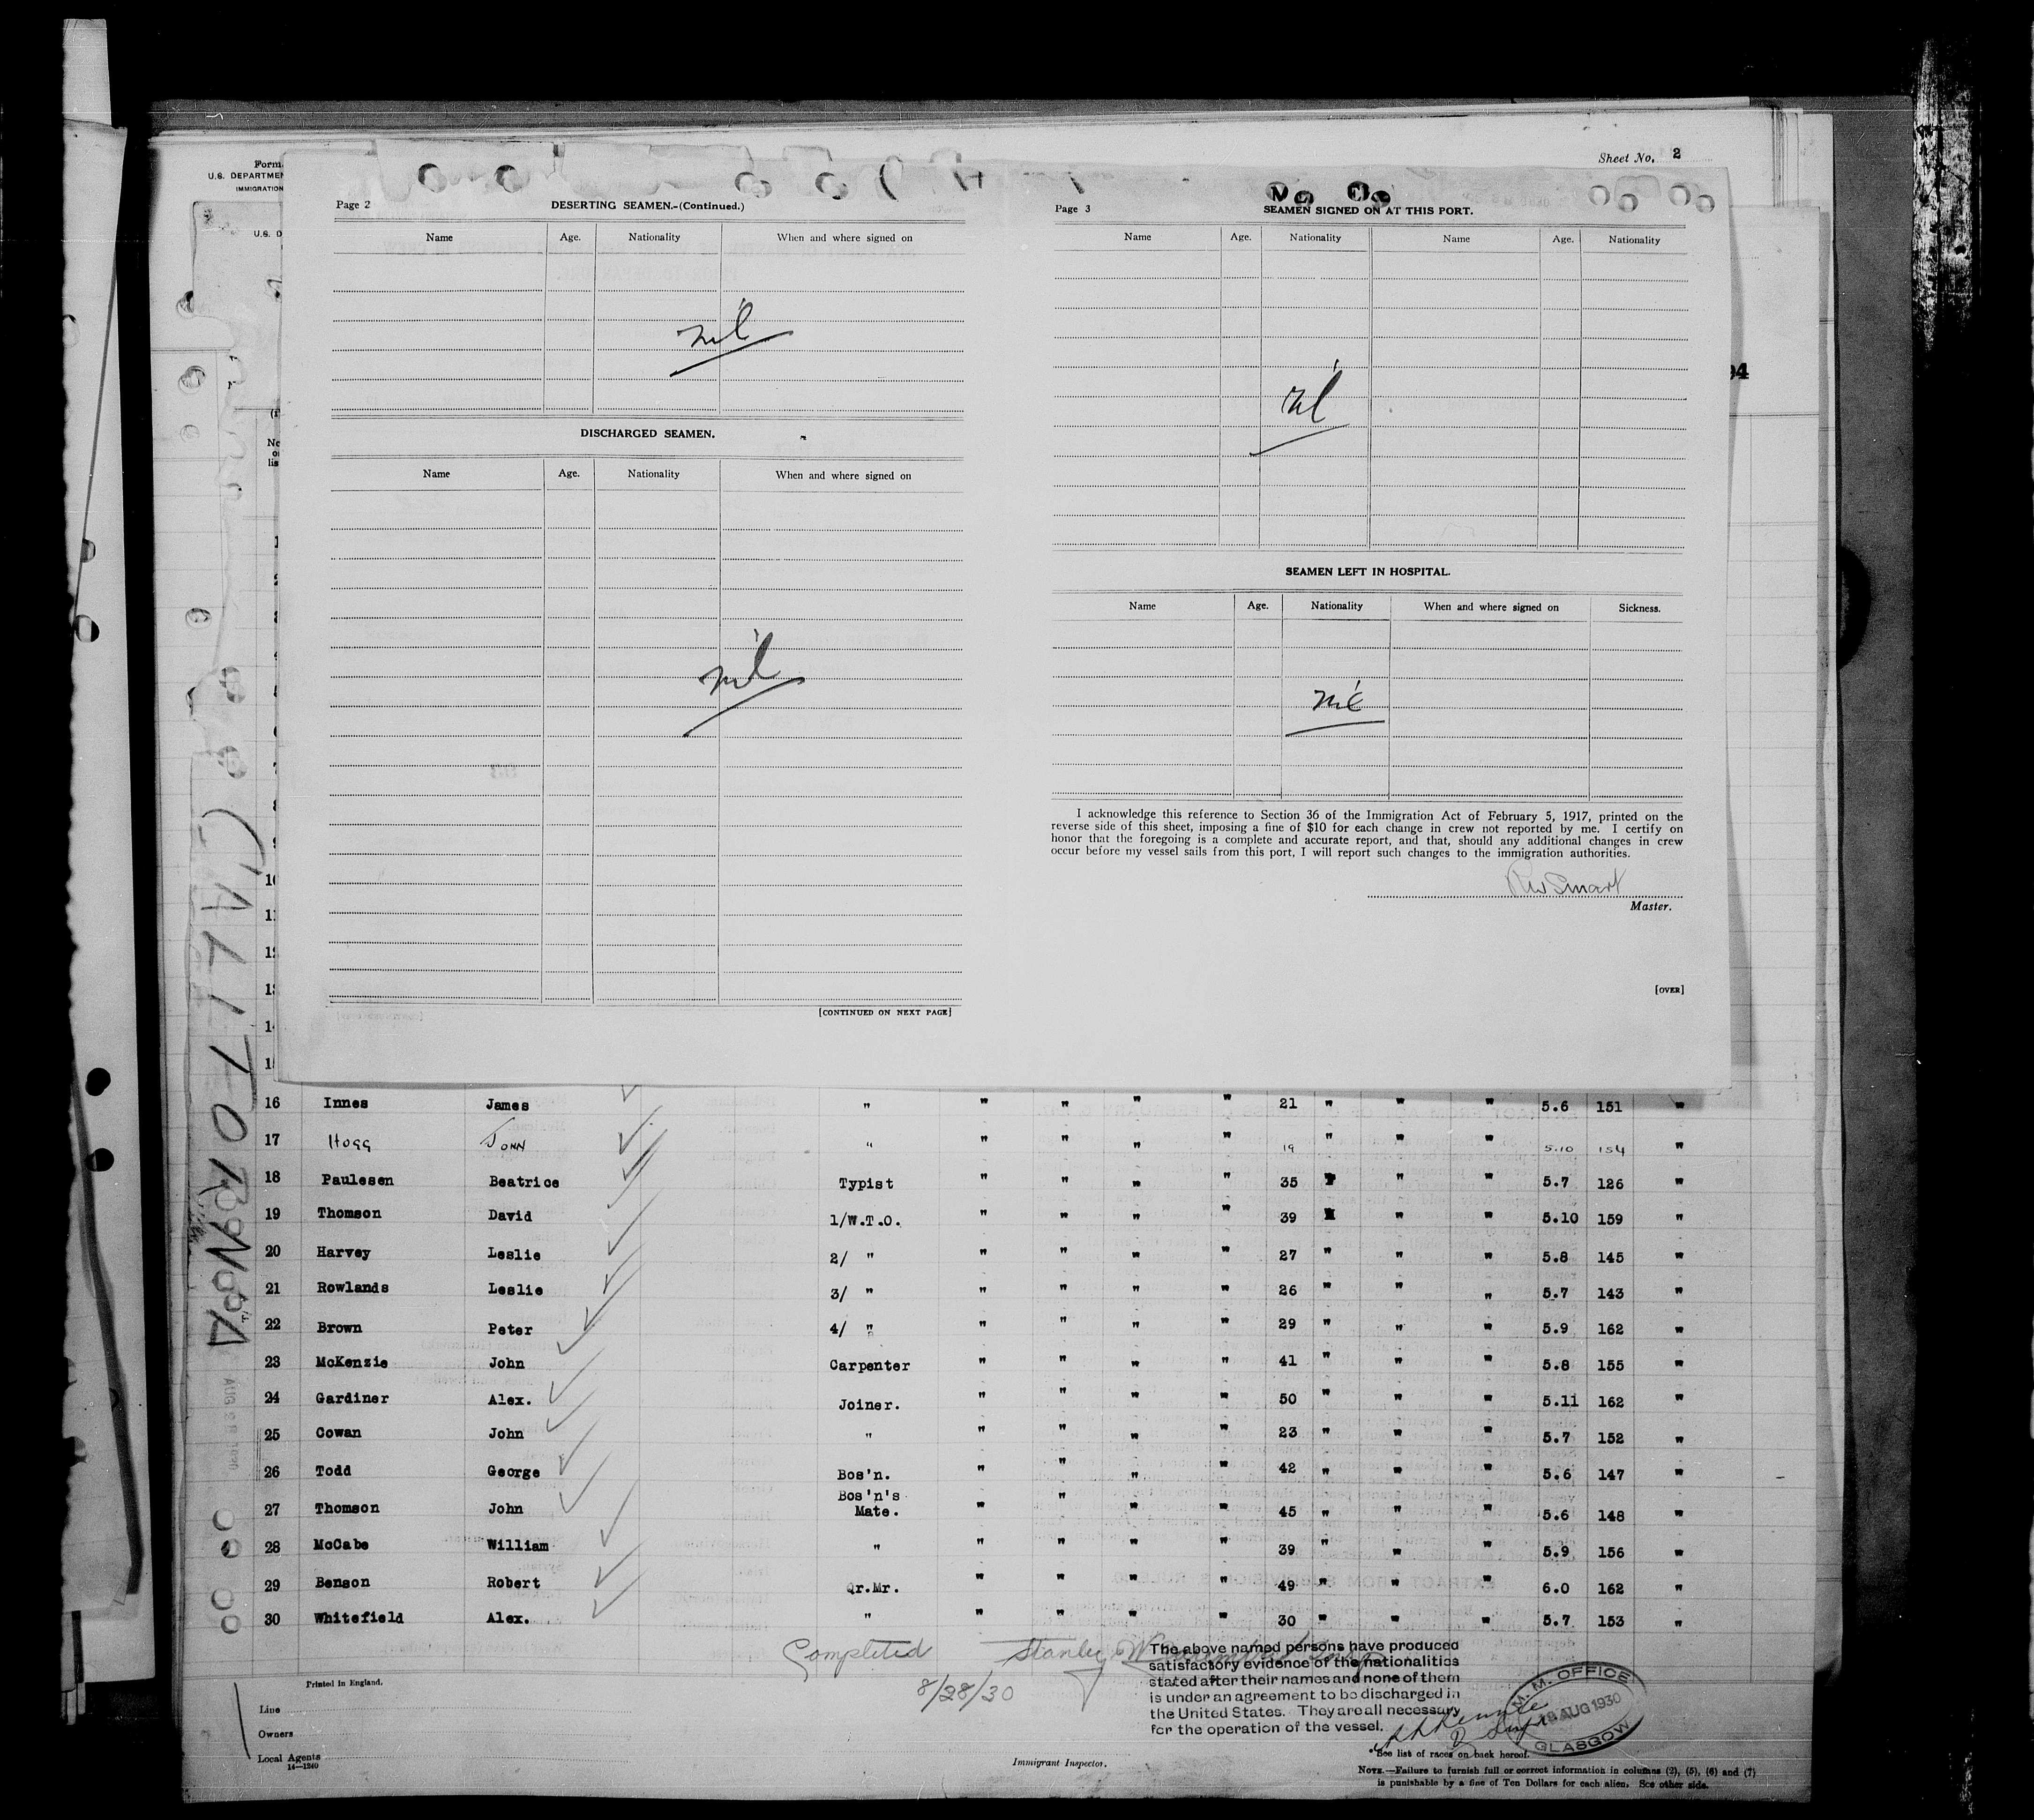 Sheet No. 2
Form
U.S. DEPARTMEN
IMMIGRATION
Page 2
DESERTING SEAMEN.-(Continued.)
Name Age. Nationality When and where signed on
nil
DISCHARGED SEAMEN.
Name Age. Nationality When and where signed on
nil
[CONTINUED ON NEXT PAGE]
Page 3
SEAMEN SIGNED ON AT THIS PORT.
Name Age. Nationality Name Age. Nationality
nil
SEAMEN LEFT IN HOSPITAL.
Name Age. Nationality When and where signed on Sickness.
nil
I acknowledge this reference to Section 36 of the Immigration Act of February 5, 1917, printed on the
reverse side of this sheet, imposing a fine of $10 for each change in crew not reported by me. I certify on
honor that the foregoing is a complete and accurate report, and that, should any additional changes in crew
occur before my vessel sails from this port, I will report such changes to the immigration authorities.
RW Smart
Master.
[OVER]
94
CALIFORNIA
16 Innes James " " " " " 21 " " " 5.6 151 "
17 Hogg John " " " " " 19 " " " 5.10 154 "
18 Paulesen Beatrice Typist " " " " 35 " " 5.7 126 "
19 Thomson David 1/W.T.O. " " " " 39 " " 5.10 159 "
20 Harvey Leslie 2/ " " " " " 27 " " " 5.8 145 "
21 Rowlands Leslie 3/ " " " " " 26 " " " 5.7 143 "
22 Brown Peter 4/ " " " " " 29 " " " 5.9 162 "
23 McKenzie John Carpenter " " " " 41 " " " 5.8 155 "
24 Gardiner Alex. Joiner. " " " " 50 " " " 5.11 162 "
25 Cowan John " " " " " 23 " " " 5.7 152 "
26 Todd George Bos'n. " " " " 42 " " " 5.6 147 "
27 Thomson John Bos'n's Mate. " " " " 45 " " " 5.6 148 "
28 McCabe William " " " " " 39 " " " 5.9 156 "
29 Benson Robert Qr.Mr. " " " " 49 " " " 6.0 162 "
30 Whitefield Alex. " " " " " 30 " " " 5.7 153 "
Completed Stanley
8/28/30
The above named persons have produced
satisfactory evidence of the nationalities
stated after their names and none of them
is under an agreement to be discharged in
the United States. They are all necessary
for the operation of the vessel.
M. M. OFFICE
AUG 1930
GLASGOW
Printed in England.
Line
Owners
Local Agents
14—1240
Immigrant Inspector.
*See list of races on back hereof.
NOTE.—Failure to furnish full or correct information in columns (2), (5), (6) and (7)
is punishable by a fine of Ten Dollars for each alien. See other side.